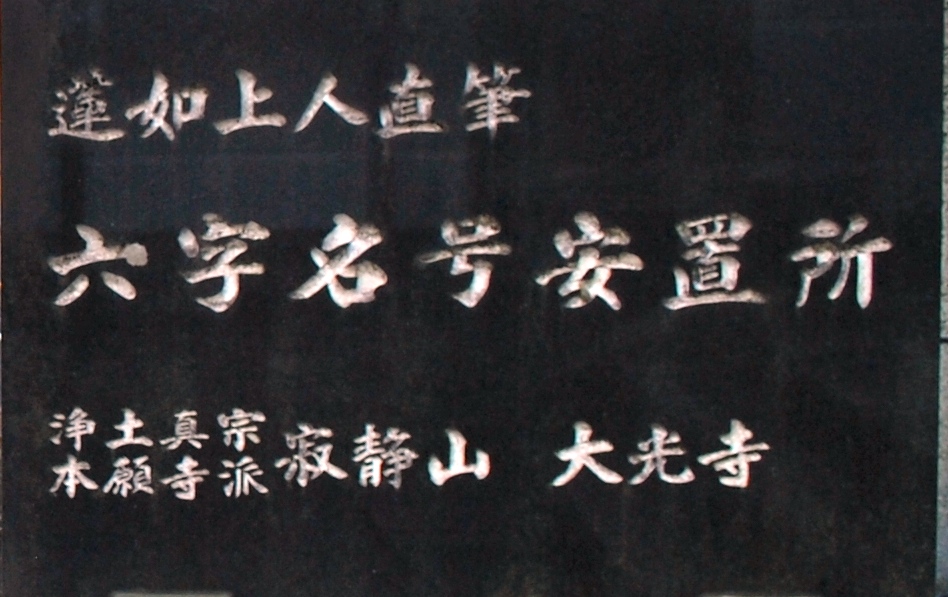 蓮如上人直筆
六字名号安置所
浄土真宗
本願寺派
寂静山 大光寺